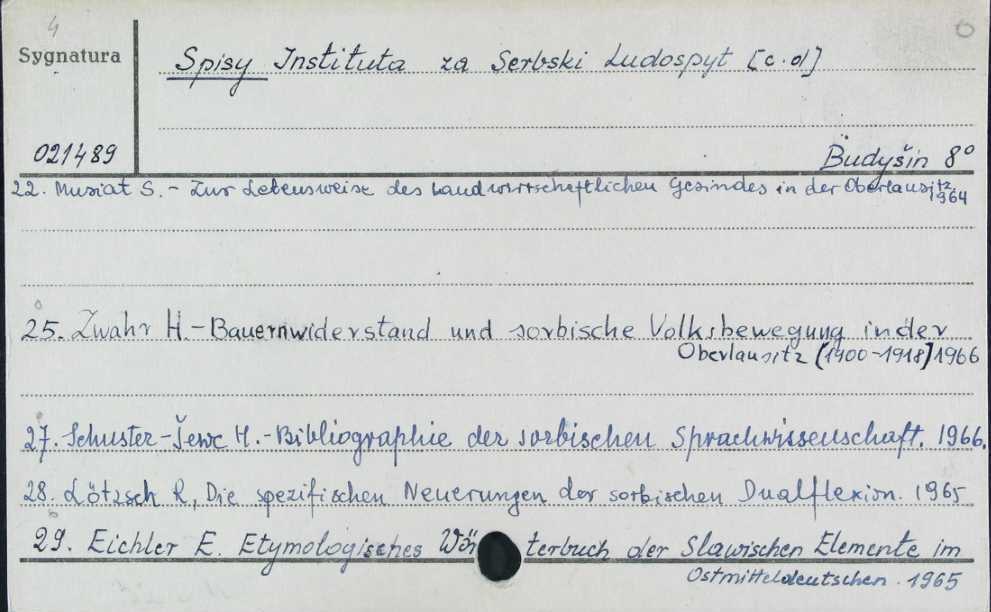 4
Sygnatura
Spisy Instituta za Serbski Ludospyt [c.d]
021489
Budyšin 8°
22. Musiat S. - Zur Lebensweise des landwirtschaftlichen Gesindes in der Oberlausitz
1964
25. Zwahr H. - Bauernwiderstand und sorbische Volksbewegung in der
Oberlausitz (1900-1918) 1966
27. Schuster-Šewc H. - Bibliographie der sorbischen Sprachwissenschaft. 1966.
28. Lötzsch R, Die spezifischen Neuerungen der sorbischen Dualflexion. 1965
29. Eichler E. Etymologisches Wörterbuch der Slawischen Elemente im
Ostmitteldeutschen. 1965